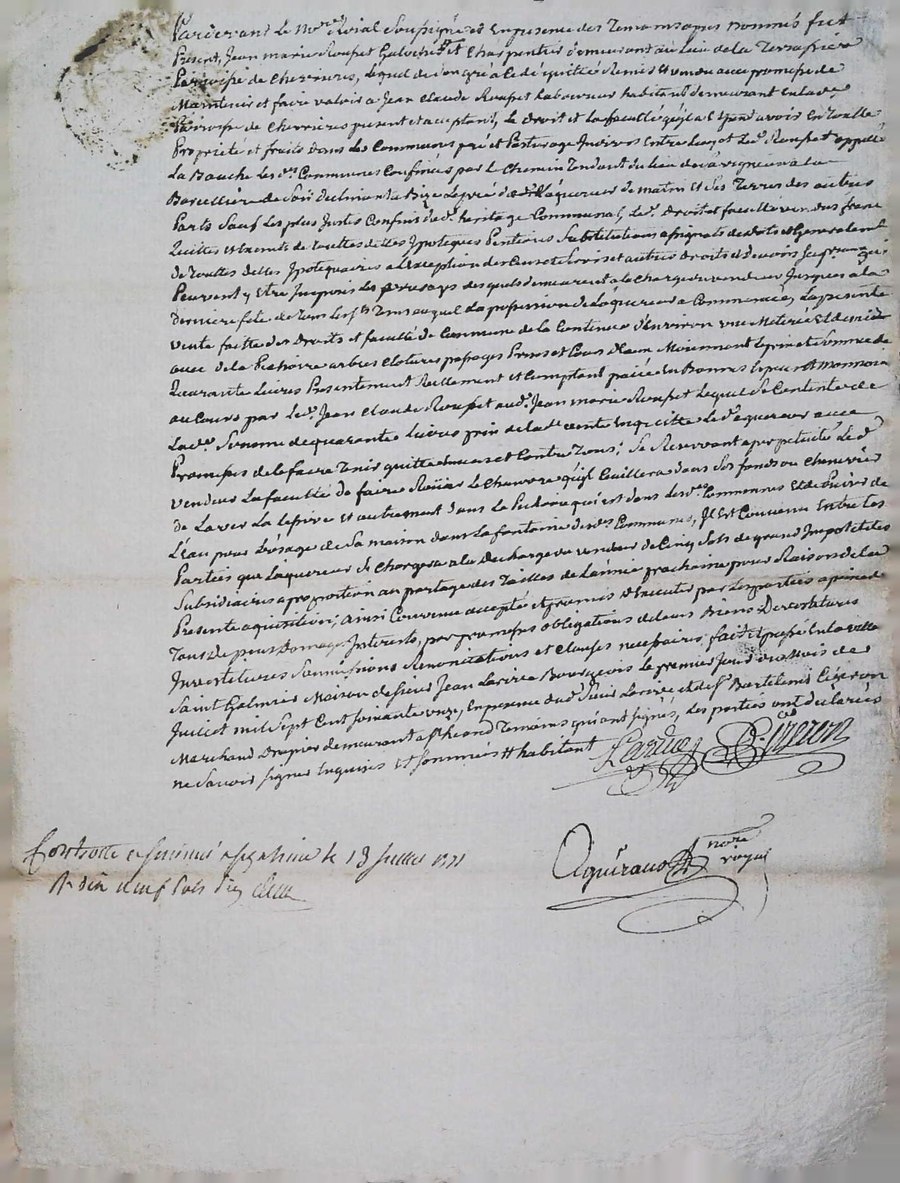 Pardevant Le No.re Roial Soussigné et En presence des Temoins apres nommés fut
Present, Jean marie Roupet Galoche et Charpentier demeurant au Lieu de la Terrasse
Parroisse de Chevrieres, Lequel de son gré a Cedé quitté Remis et vendu avec promesse de
Maintenir et faire valoir a Jean Claude Roupet Laboureur habitant demeurant En lad.e
Parroisse de Chevrieres present et acceptant, Le droit et La faculté qu'il a Et peut avoir En Toutte
Proprieté et fruits dans Les Communes pré et Pasturage Indivis Entre Luy et Led. Roupet appellé
La Bauche Les d.es Communes Confinées par Le Chemin Tendant du Lieu de à la
Barcellière de Soir declinant a Bize Le pré dud. aquereur de matin Et Ses Terres des autres
Parts Sauf Les plus Justes Confins dud. heritage Communal, Led. droit et faculté vendus franc
Quittes et Exempts de Touttes dettes Ipoteques Pentions Substitutions de dots et Generalement
de Touttes dettes Ipotequaires a L'Exception des Cens et Servis et autres droits et devoirs Seig.aux qui
Peuvent y Etre Imposés Les arrerages desquels demeurent a la Charge du vendeur Jusques a la
derniere fete de Tous Les S.ts Tems auquel La possession de L'aquereur a Commencée, La presente
vente faitte des Droits et faculté de Commune de la Contenue d'environ une Meterée Et demie
avec de la Pischoire arbres Clotures passages Prises et Cours d'Eaux Moiennant Le prix et Somme de
Quarante Livres Presentement Reellement et Comptant paiée En Bonnes Especes et monnoie
au Cours par Led. Jean Claude Roupet aud. Jean marie Roupet Lequel Se Contente de
Lad.e Somme de quarante Livres prix de lad.e vente En quitte Led. aquereur avec
Promesse de le faire Tenir quitte Envers et Contre Tous; Se Reservant a perpetuité Led.
vendeur La faculté de faire Rouir Le Chanvre qu'il Cuillera dans Ses fonds ou Cheneviers
de Laver La Lessive et autrement dans La qui est dans Lesd.es Communes Et de Puiser de
L'eau pour L'usage de Sa maison dans La fontaine desd.es Communes, Il Est Convenu Entre Les
Parties que L'aquereur Se Chargera a la decharge du vendeur de Cinq Sols de grand Impot et des
Subsidiaires a proportion au partage des Tailles de L'année prochaine pour Raison de La
Presente aquisition; ainsi Convenu accepté et promis d'Executer par Les parties a peine de
Tous depens Domage Interets, par promesses obligations de Leurs Biens Devestitures
Investitures Soumissions Renonciations et Clauses necessaires fait et passé En la ville
Saint Galmier Maison de Sieur Jean Bourgeois Le premier Jour du Mois de
Juillet mil Sept Cent Soixante unze, En presence dud. Sieur et de S.r Bartelemi Cizeron
Marchand Drapier demeurant a St heand Temoins qui ont Signés, Les parties ont declarées
ne Savoir Signer Enquises Et Sommées # habitant
Cizeron
Controllé et insinué a St galmier le 13 Juillet 1771
R. dix neuf sols six
Aguiraud nore
royal